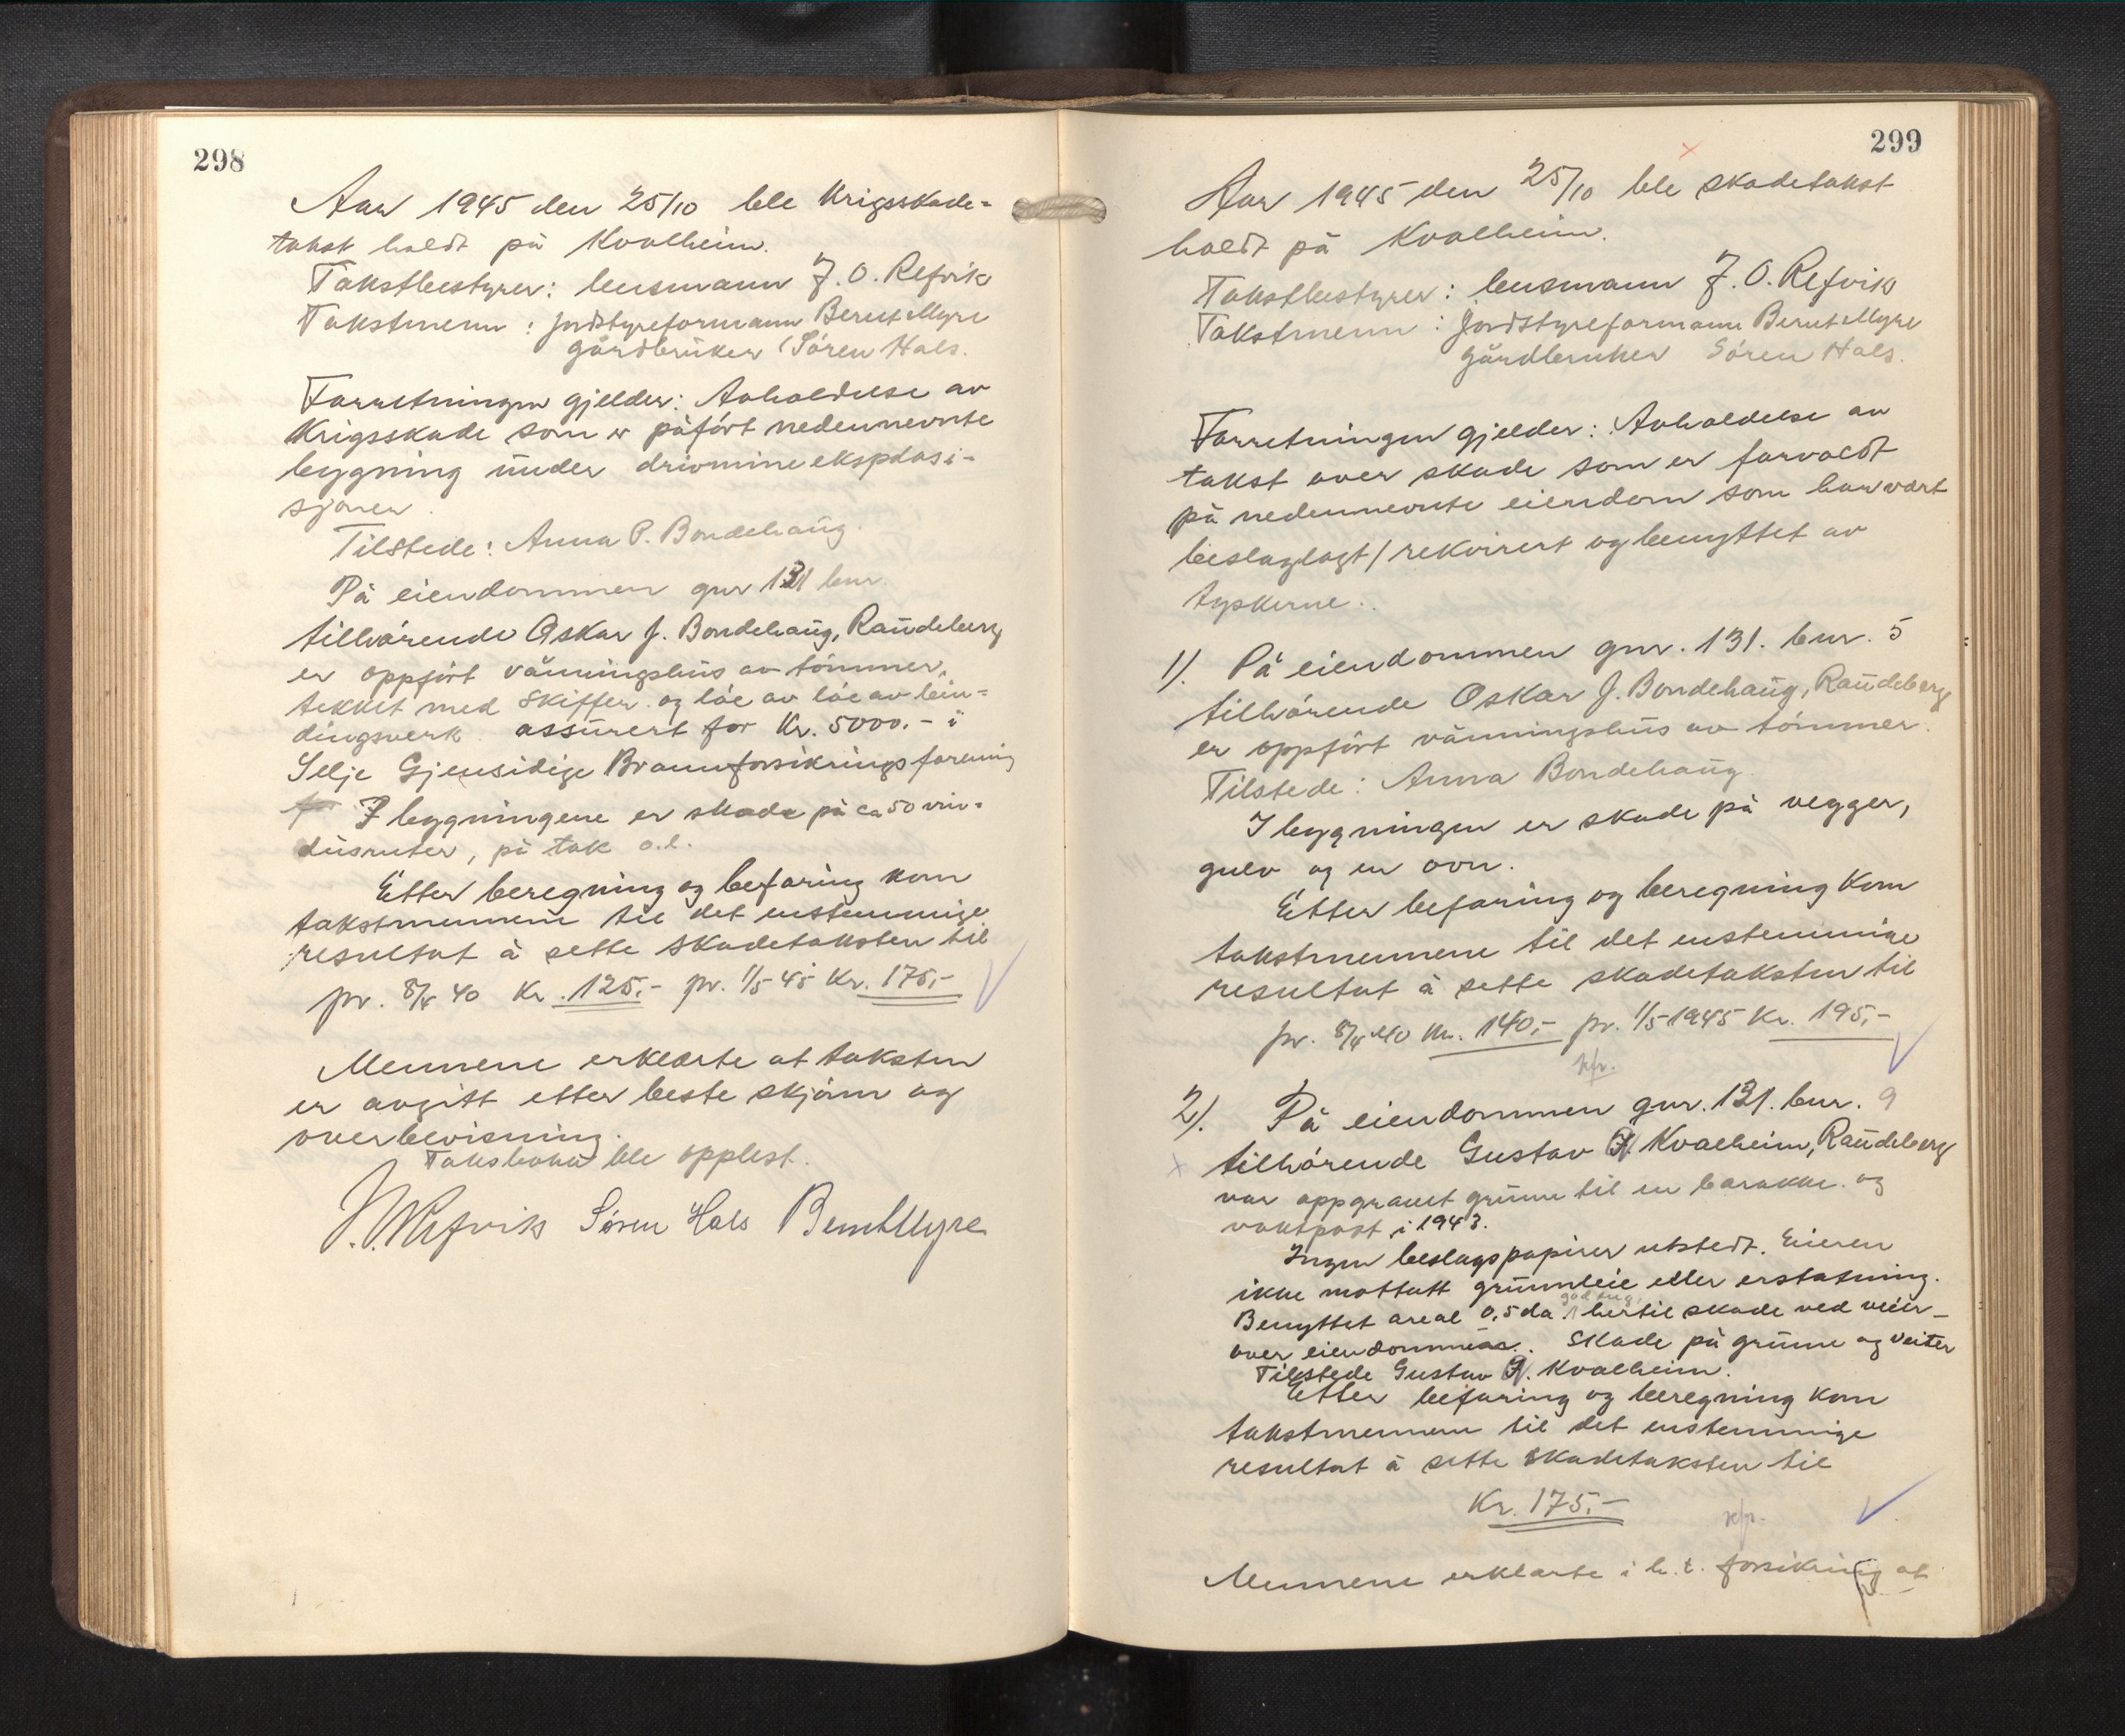 298
Aar 1945 den 25/10 ble Krigsskade=
takst holdt på Kvalheim.
Takstbestyrer: lensmann J. O. Refvik
Takstmenn: jordstyreformann Bernt Myre
gårdbruker Sören Hals.
Forretningen gjelder: Avholdelse av
Krigsskade som er påfört nedennevnte
bygning under drivmineeksplosi-
sjonen.
Tilstede: Anna P. Bondehaug.
På eiendommen gnr 131 bnr.
tilhörende Oskar J. Bondehaug, Raudeberg
er oppfört våningshus av tömmer,
tekket med skiffer og löe av löe av bin=
dingsverk assurert for Kr. 5000.- i
Selje Gjensidige Brannforsikringsforening
for I bygningene er skade på ca 50 vin=
dusruter, på tak o.l.
Etter beregning og befaring kom
takstmennene til det enstemmige
resultat å sette skadetaksten til
pr. 8/4 40 Kr. 125,- pr. 1/5-45 Kr. 175,-
Mennene erklærte at taksten
er avgitt etter beste skjönn og
overbevisning.
Takstboka ble opplest.
J. O. Refvik Sören Hals Bernt Myre
299
Aar 1945 den 25/10 ble skadetakst
holdt på Kvalheim.
Takstbestyrer: lensmann J. O. Refvik
Takstmenn: Jordstyreformann Bernt Myre
gårdbruker Sören Hals.
Forretningen gjelder: Avholdelse av
takst over skade som er forvoldt
på nedennevnte eiendom som har vært
beslaglagt/rekvirert og benyttet av
tyskerne.
1). På eiendommen gnr. 131. bnr. 5
tilhörende Oskar J. Bondehaug, Raudeberg
er oppfört våningshus av tömmer.
Tilstede: Anna Bondehaug.
I bygningen er skade på vegger,
gulv og en ovn.
Etter befaring og beregning kom
takstmennene til det enstemmige
resultat å sette skadetaksten til
pr. 8/4 40 Kr. 140,- pr. 1/5-1945 Kr. 195,-
2). På eiendommen gnr. 131. bnr. 9
tilhörende Gustav J. Kvalheim, Raudeberg
var oppgravet grunn til en barakke og
vaktpost i 1943.
Ingen beslagspapirer utstedt. Eieren
ikke mottatt grunnleie eller erstatning.
Benyttet areal 0,5 da. hertil skade ved veier
over eiendommen. Skade på grunn og veiter
Tilstede Gustav J. Kvalheim.
Etter befaring og beregning kom
takstmennene til det enstemmige
resultat å sette skadetaksten til
Kr. 175.-
Mennene erklærte i h. t. forsikring at